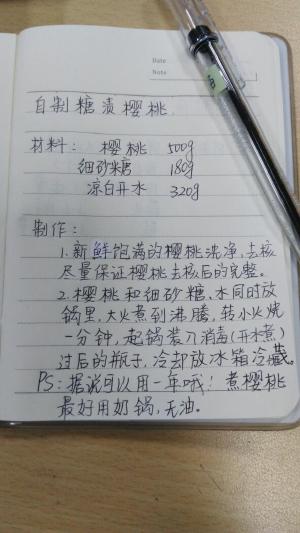 Date
Note
自制糖渍樱桃.
材料: 樱桃 500g
细砂糖 180g
凉白开水 320g
制作:
1.新鲜饱满的樱桃洗净,去核
尽量保证樱桃去核后的完整。
2.樱桃和细砂糖、水同时放
锅里,大火煮到沸腾,转小火烧
一分钟,起锅装入消毒(开水煮)
过后的瓶子,冷却放冰箱冷藏。
PS:据说可以用一年哦!煮樱桃
最好用奶锅,无油。